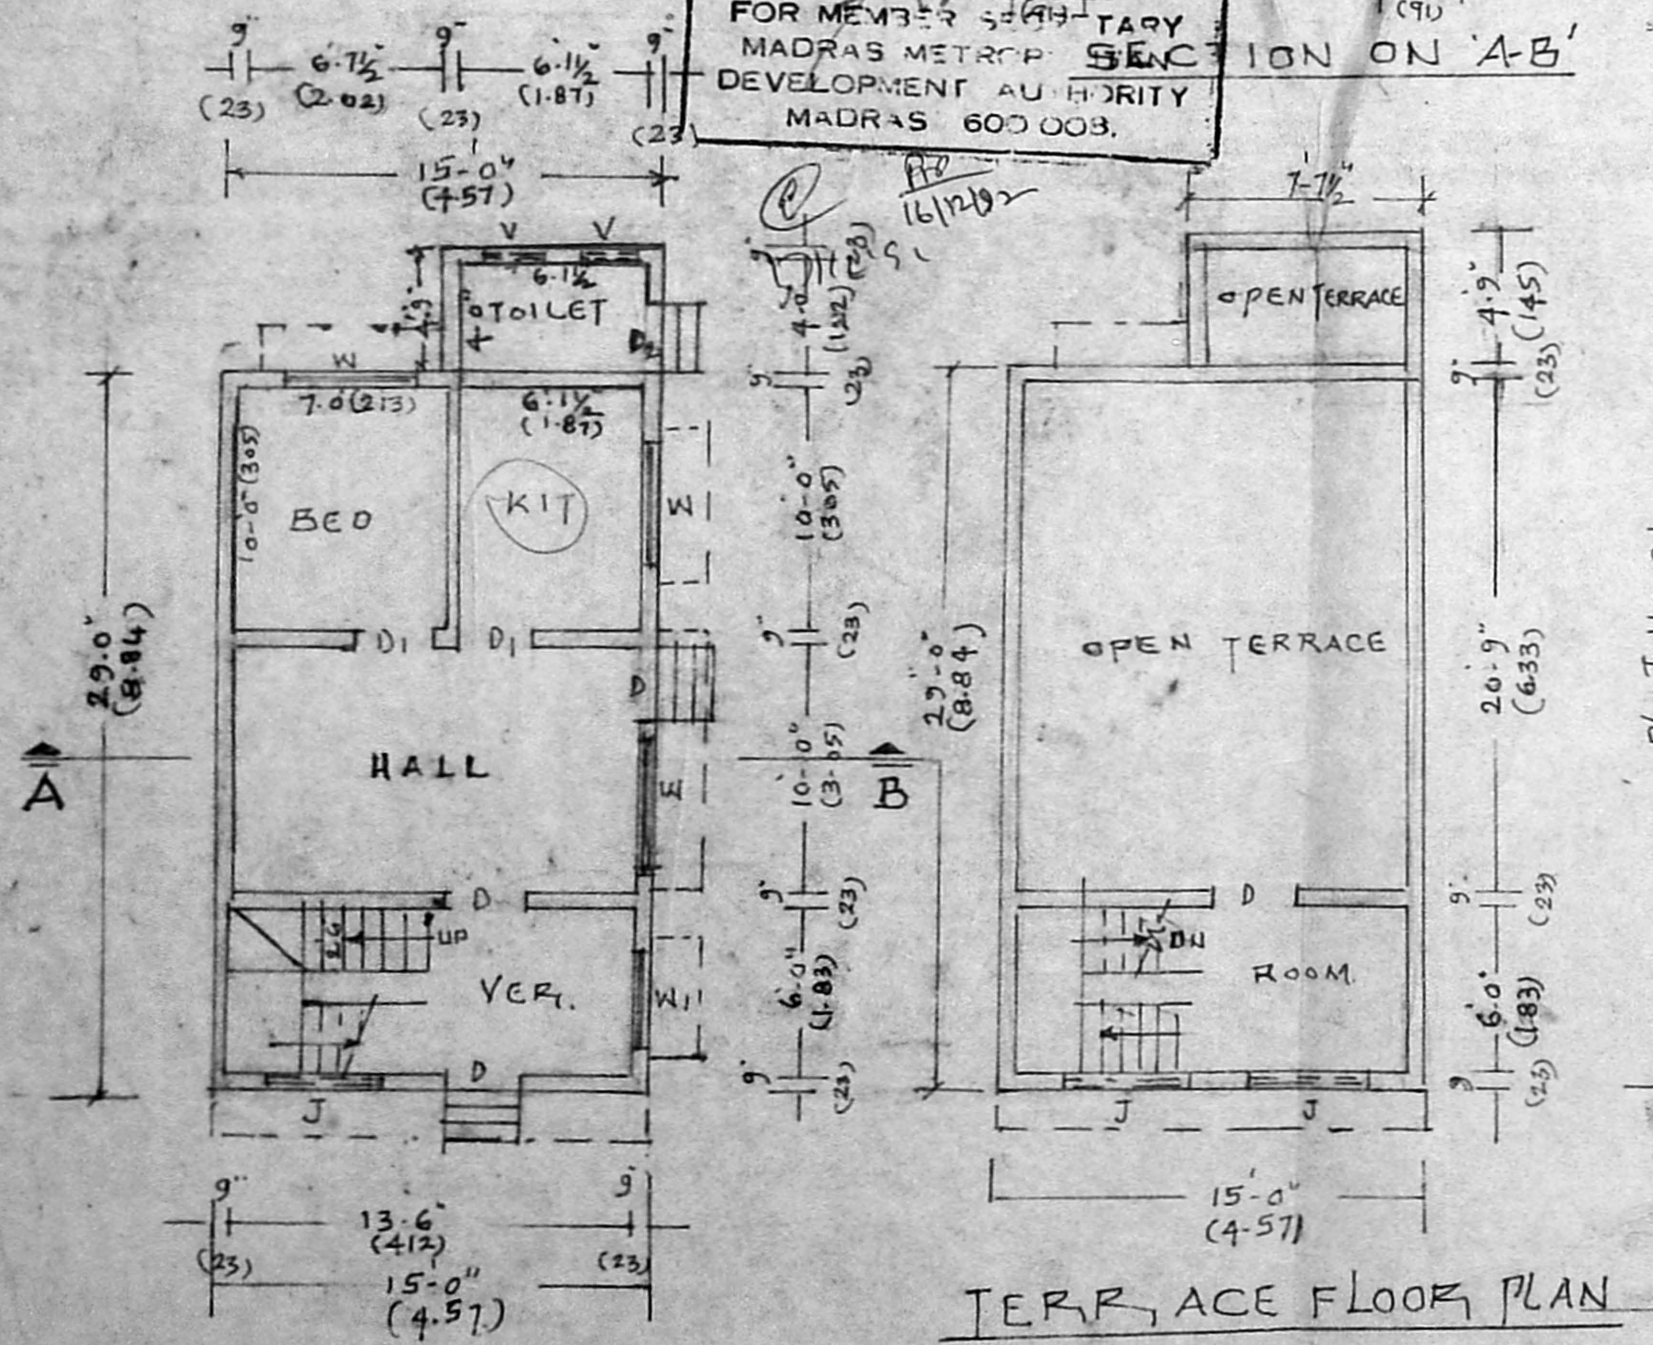 FOR MEMBER SE TARY
MADRAS METROP
DEVELOPMENT AU HORITY
MADRAS 600 008.
(91)
SECTION ON 'A-B'
9" 6'-7½" 9" 6'-1½" 9"
(23) (2.02) (23) (1.87) (23)
15'-0"
(4.57)
16/12/92
7'-7½"
V V
6'-1½
TOILET
4'-0"
4'-9"
D2
W
7'-0"(213)
6'-1½
(1.87)
10'-0" (305)
BED
KIT
W
D1 D1
D
HALL
W
D
26
UP
VER.
W1
D
J
29'-0"
(8.84)
A
B
9" (23)
4'-0" (122)
9" (23)
10'-0" (305)
9" (23)
10'-0" (3.05)
9" (23)
6'-0" (1.83)
9" (23)
9" 9"
13'-6"
(412)
(23) (23)
15'-0"
(4.57)
OPEN TERRACE
OPEN TERRACE
29'-0"
(8.84)
D
DN
ROOM.
J J
4'-9" (145)
9" (23)
20'-9" (6.33)
9" (23)
6'-0" (1.83)
9" (23)
15'-0"
(4.57)
TERRACE FLOOR PLAN